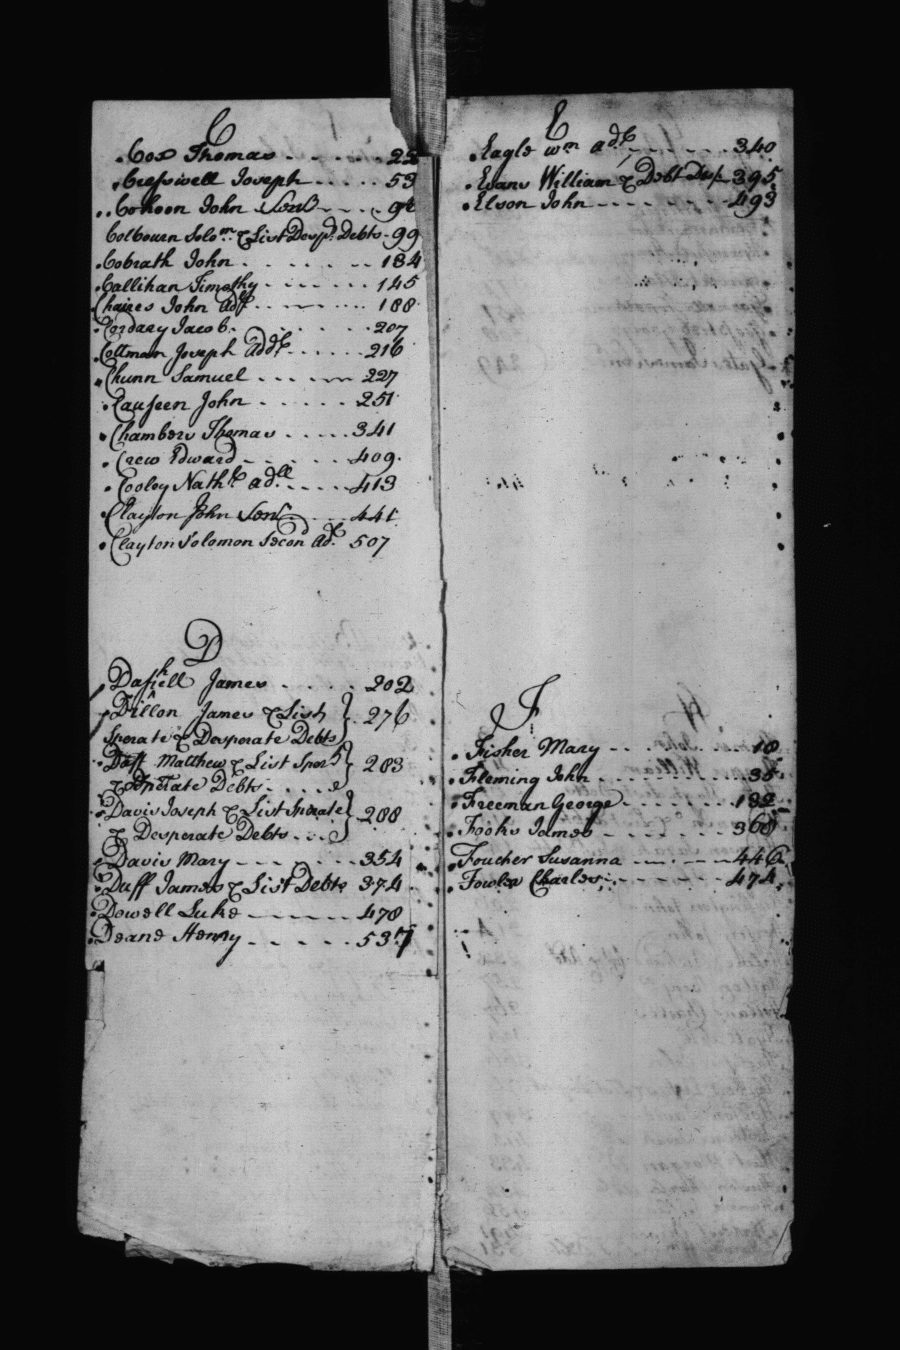 C
Cox Thomas 22
Cresswell Joseph 53
Cohoon John Senr
Colbourn Solon. & List Despd. Debts 99
Cobrath John 134
Callihan Timothy 145
Chaires John Adl 188
Cordary Jacob 207
Cottman Joseph Addl 216
Chunn Samuel 227
Causeen John 251
Chambers Thomas 341
Crew Edward 409
Cooley Nathl. adll 413
Clayton John Senr 441
Clayton Solomon Second Adl. 507
D
Dashiell James 202
Dillon James & List 276
Sperate & Desperate Debts
Duff Matthew & List Sperd 283
& Desperate Debts
Davis Joseph & List Sperate 288
& Desperate Debts
Davis Mary 354
Duff James & List Debts 374
Dowell Luke 478
Deane Henry 537
E
Eagle Wm adl 340
Evans William & Debt Desp 395
Elson John 493
F
Fisher Mary 18
Fleming John 35
Freeman George 132
Fooks James 368
Foucher Susanna 446
Fowler Charles 474